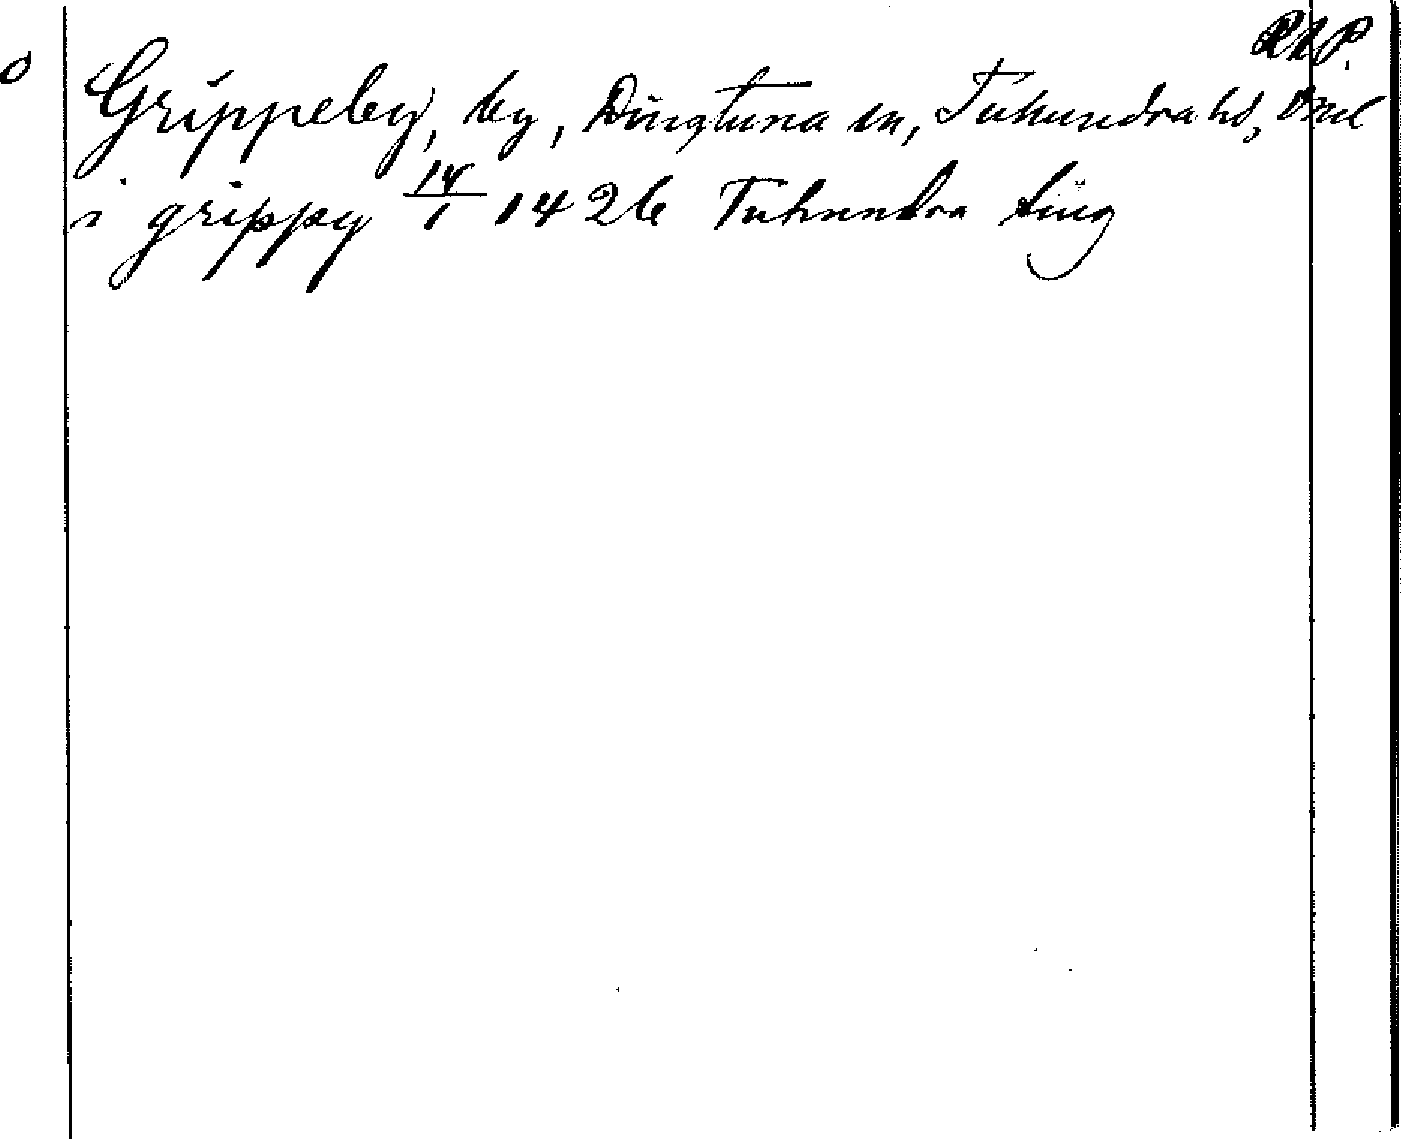 RAP.
Grippeby, by, Dingtuna sn, Tuhundra hd, Vml
i grippy 14/1 1426 Tuhundra ting